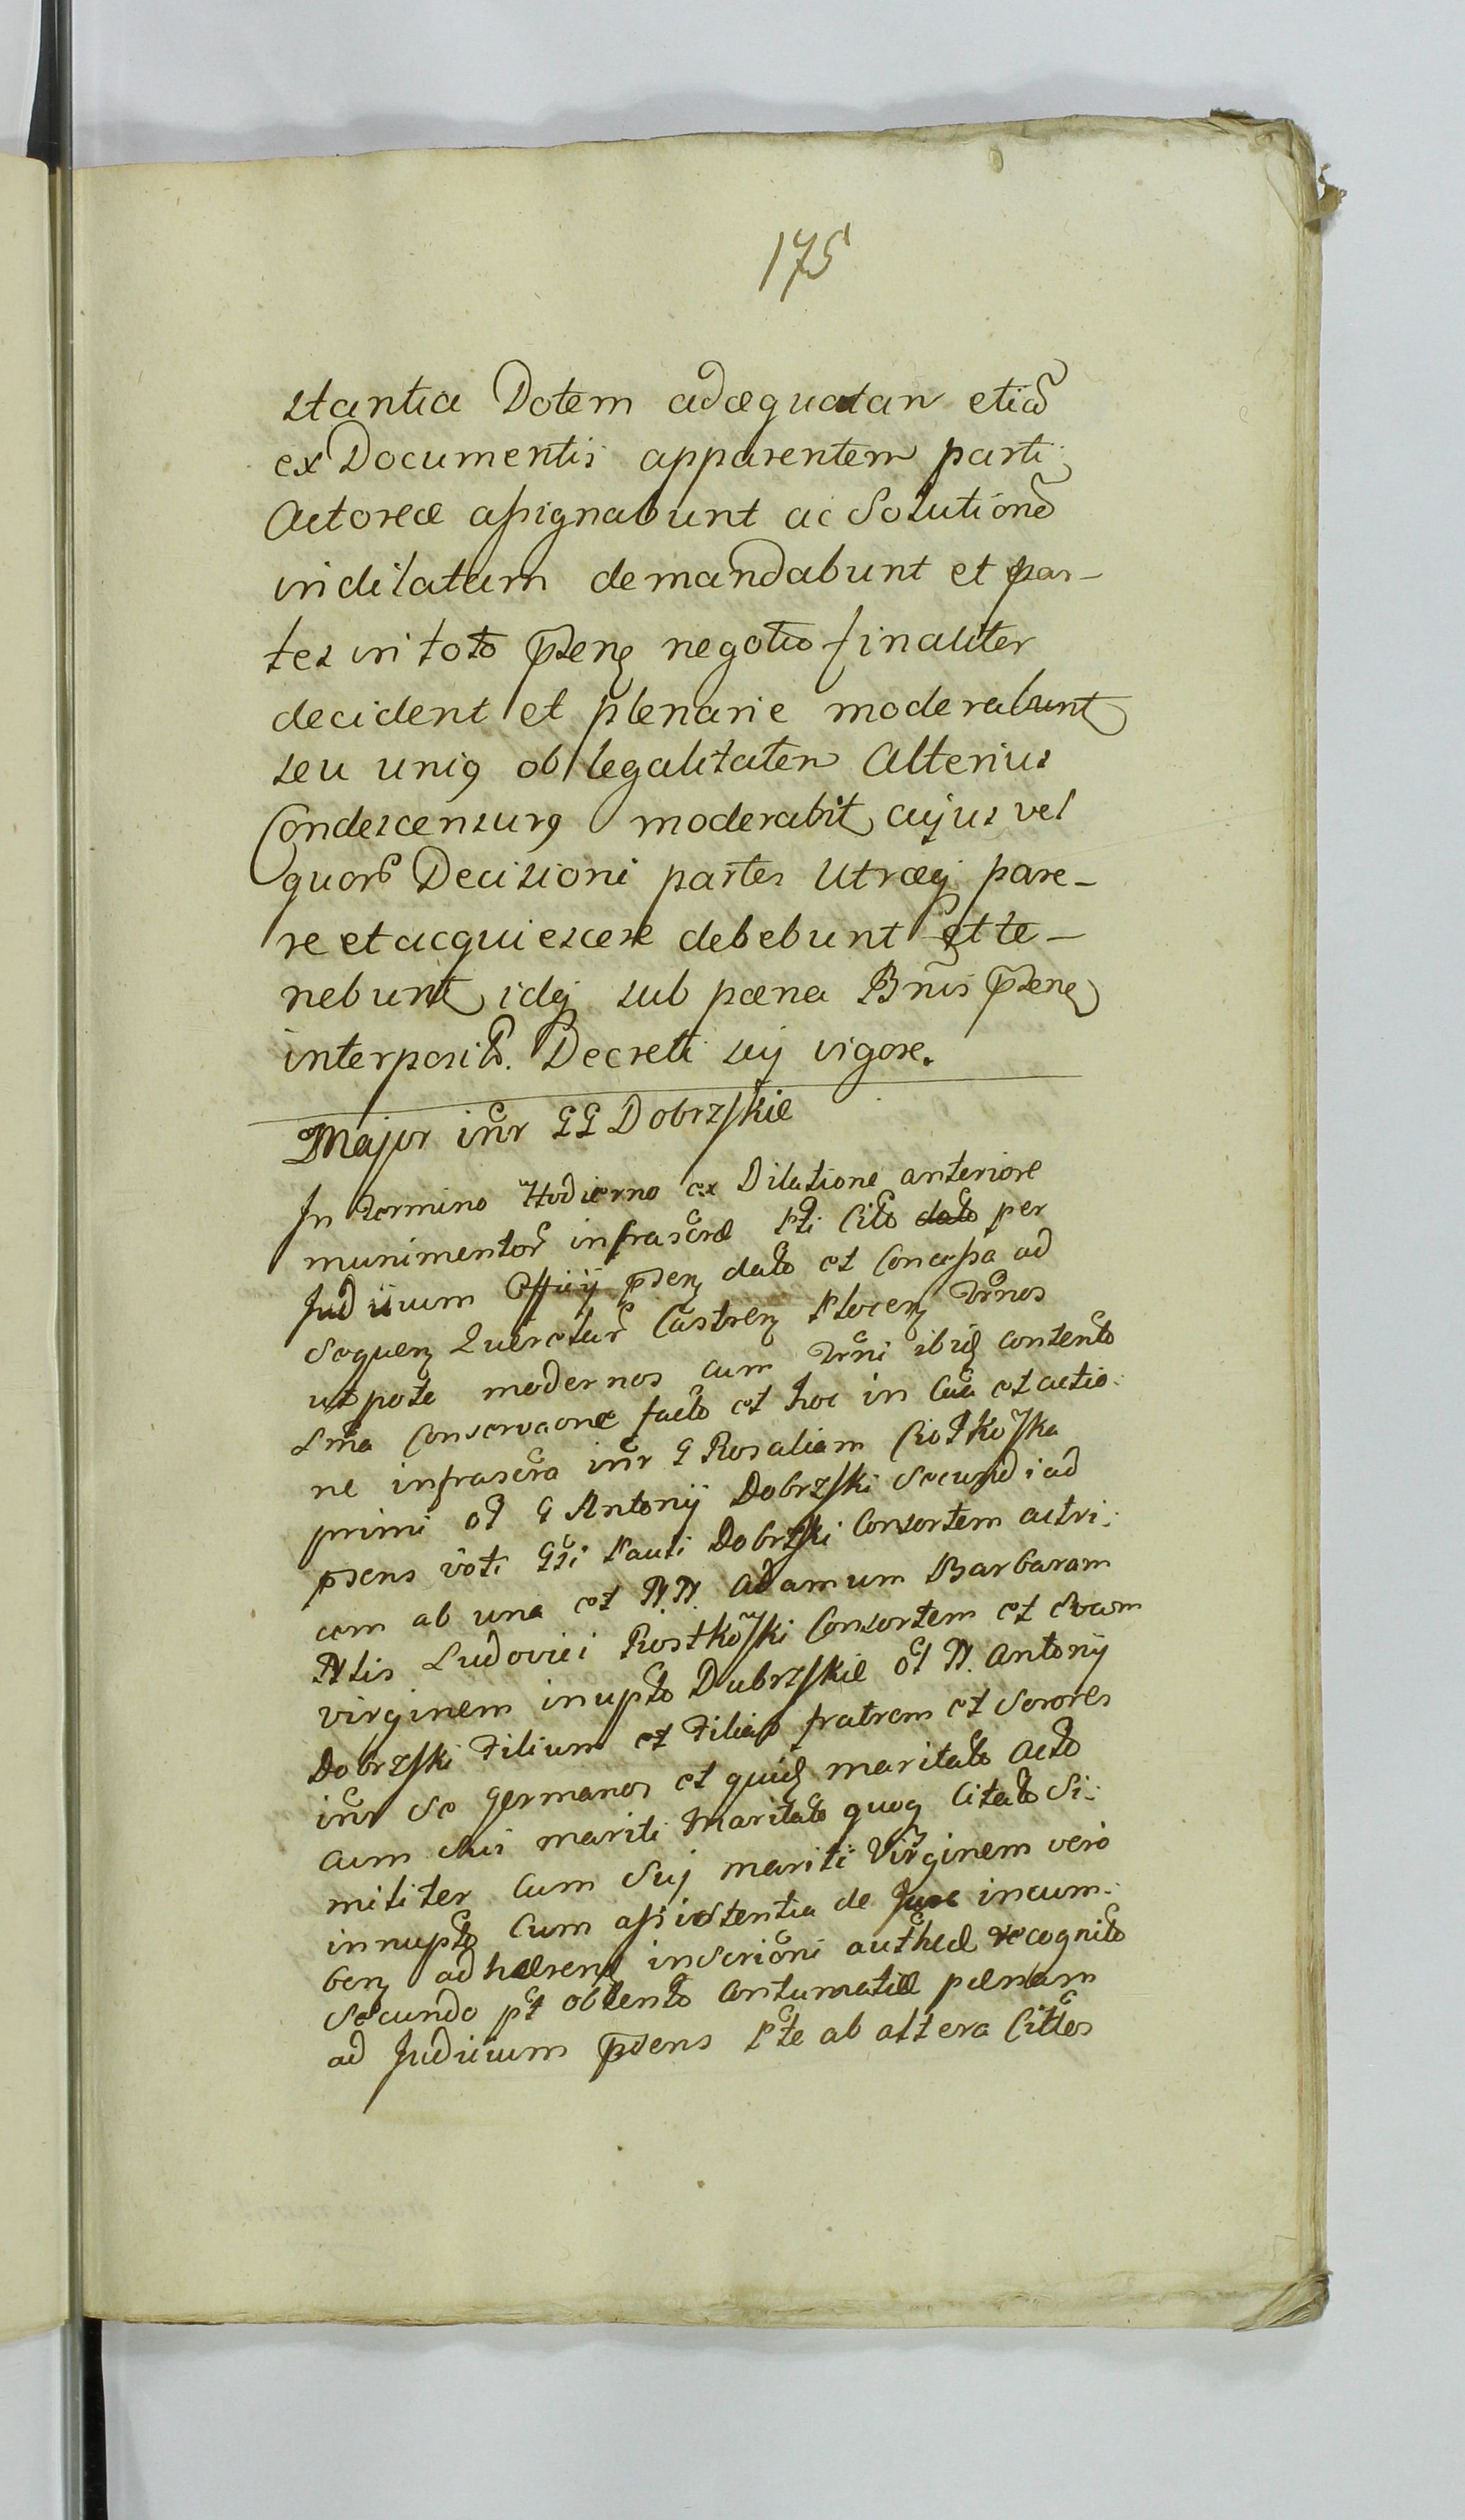 175
stantia Dotem adæquatan etiã
ex Documentis apparentem parti
Actoreæ assignabunt ac Solutionẽ
indilatam demandabunt et par-
tes in toto p̃senȝ negotio finaliter
decident et plenarie moderabunt
seu uniꝯ ob legalitatem Alterius
Condescensurꝯ moderabit, cujus vel
quorũ Decisioni partes Utræqȝ pare-
re et acquiescere debebunt et te-
nebunt, idqȝ sub pæna Bnis p̃senȝ
interposit. Decreti sui vigore.
Major inr GG Dobrzskie
In Termino Hodierno ex Dilatione anteriore
munimentor infrascræ Pti Cito dato per
Judicium Officij p̃senȝ dato et Concessa ad
Sequenȝ Castrenȝ Plocenȝ Trnos
utpote modernos cum Trni ibidȝ contento
Sma Conservaone facto et hoc in Cãa et actio-
ne infrascra inr G Rosaliam Ciołkoska
primi et G Antonij Dobrzski Secundi ad
p̃sens voti Gsi Pauli Dobrzski Consortem actri:
cem ab una et NN. Adamum Barbaram
Nlis Ludovici Rostkoski Consortem et Evam
virginem inupto Dobrzskie et N. Antonij
Dobrzski Filium et Filias fratrem et Sorores
inr Se germanos et quidȝ maritato Acto
cum sui mariti Maritato quoqȝ Citato Si:
militer Cum Sui mariti Virginem vero
innupto Cum assistentia de Jure incum:
benȝ adhærenȝ inscrioni recognito
Secundo pt obtento Contumatiæ pænam
ad Judicium p̃sens Pte ab altera Cittos